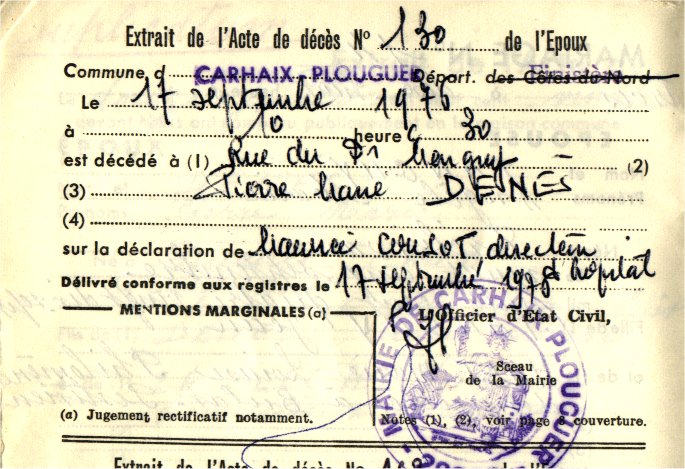 Extrait de l'Acte de décès Nº 130 de l'Epoux
Commune d CARHAIX-PLOUGUER Départ. des Côtes-du-Nord
Le 17 septembre 1976
à 10 heure 30
est décédé à (1) Rue du Dr Menguy (2)
(3) Pierre Marie DENÈS
(4)
sur la déclaration de Maurice COUSOT, directeur
d'hôpital
Délivré conforme aux registres le 17 septembre 1976
MENTIONS MARGINALES (a)
L'Officier d'Etat Civil,
Sceau
de la Mairie
MAIRIE DE CARHAIX PLOUGUER
(a) Jugement rectificatif notamment.
Notes (1), (2), voir page de couverture.
Extrait de l'Acte de décès Nº